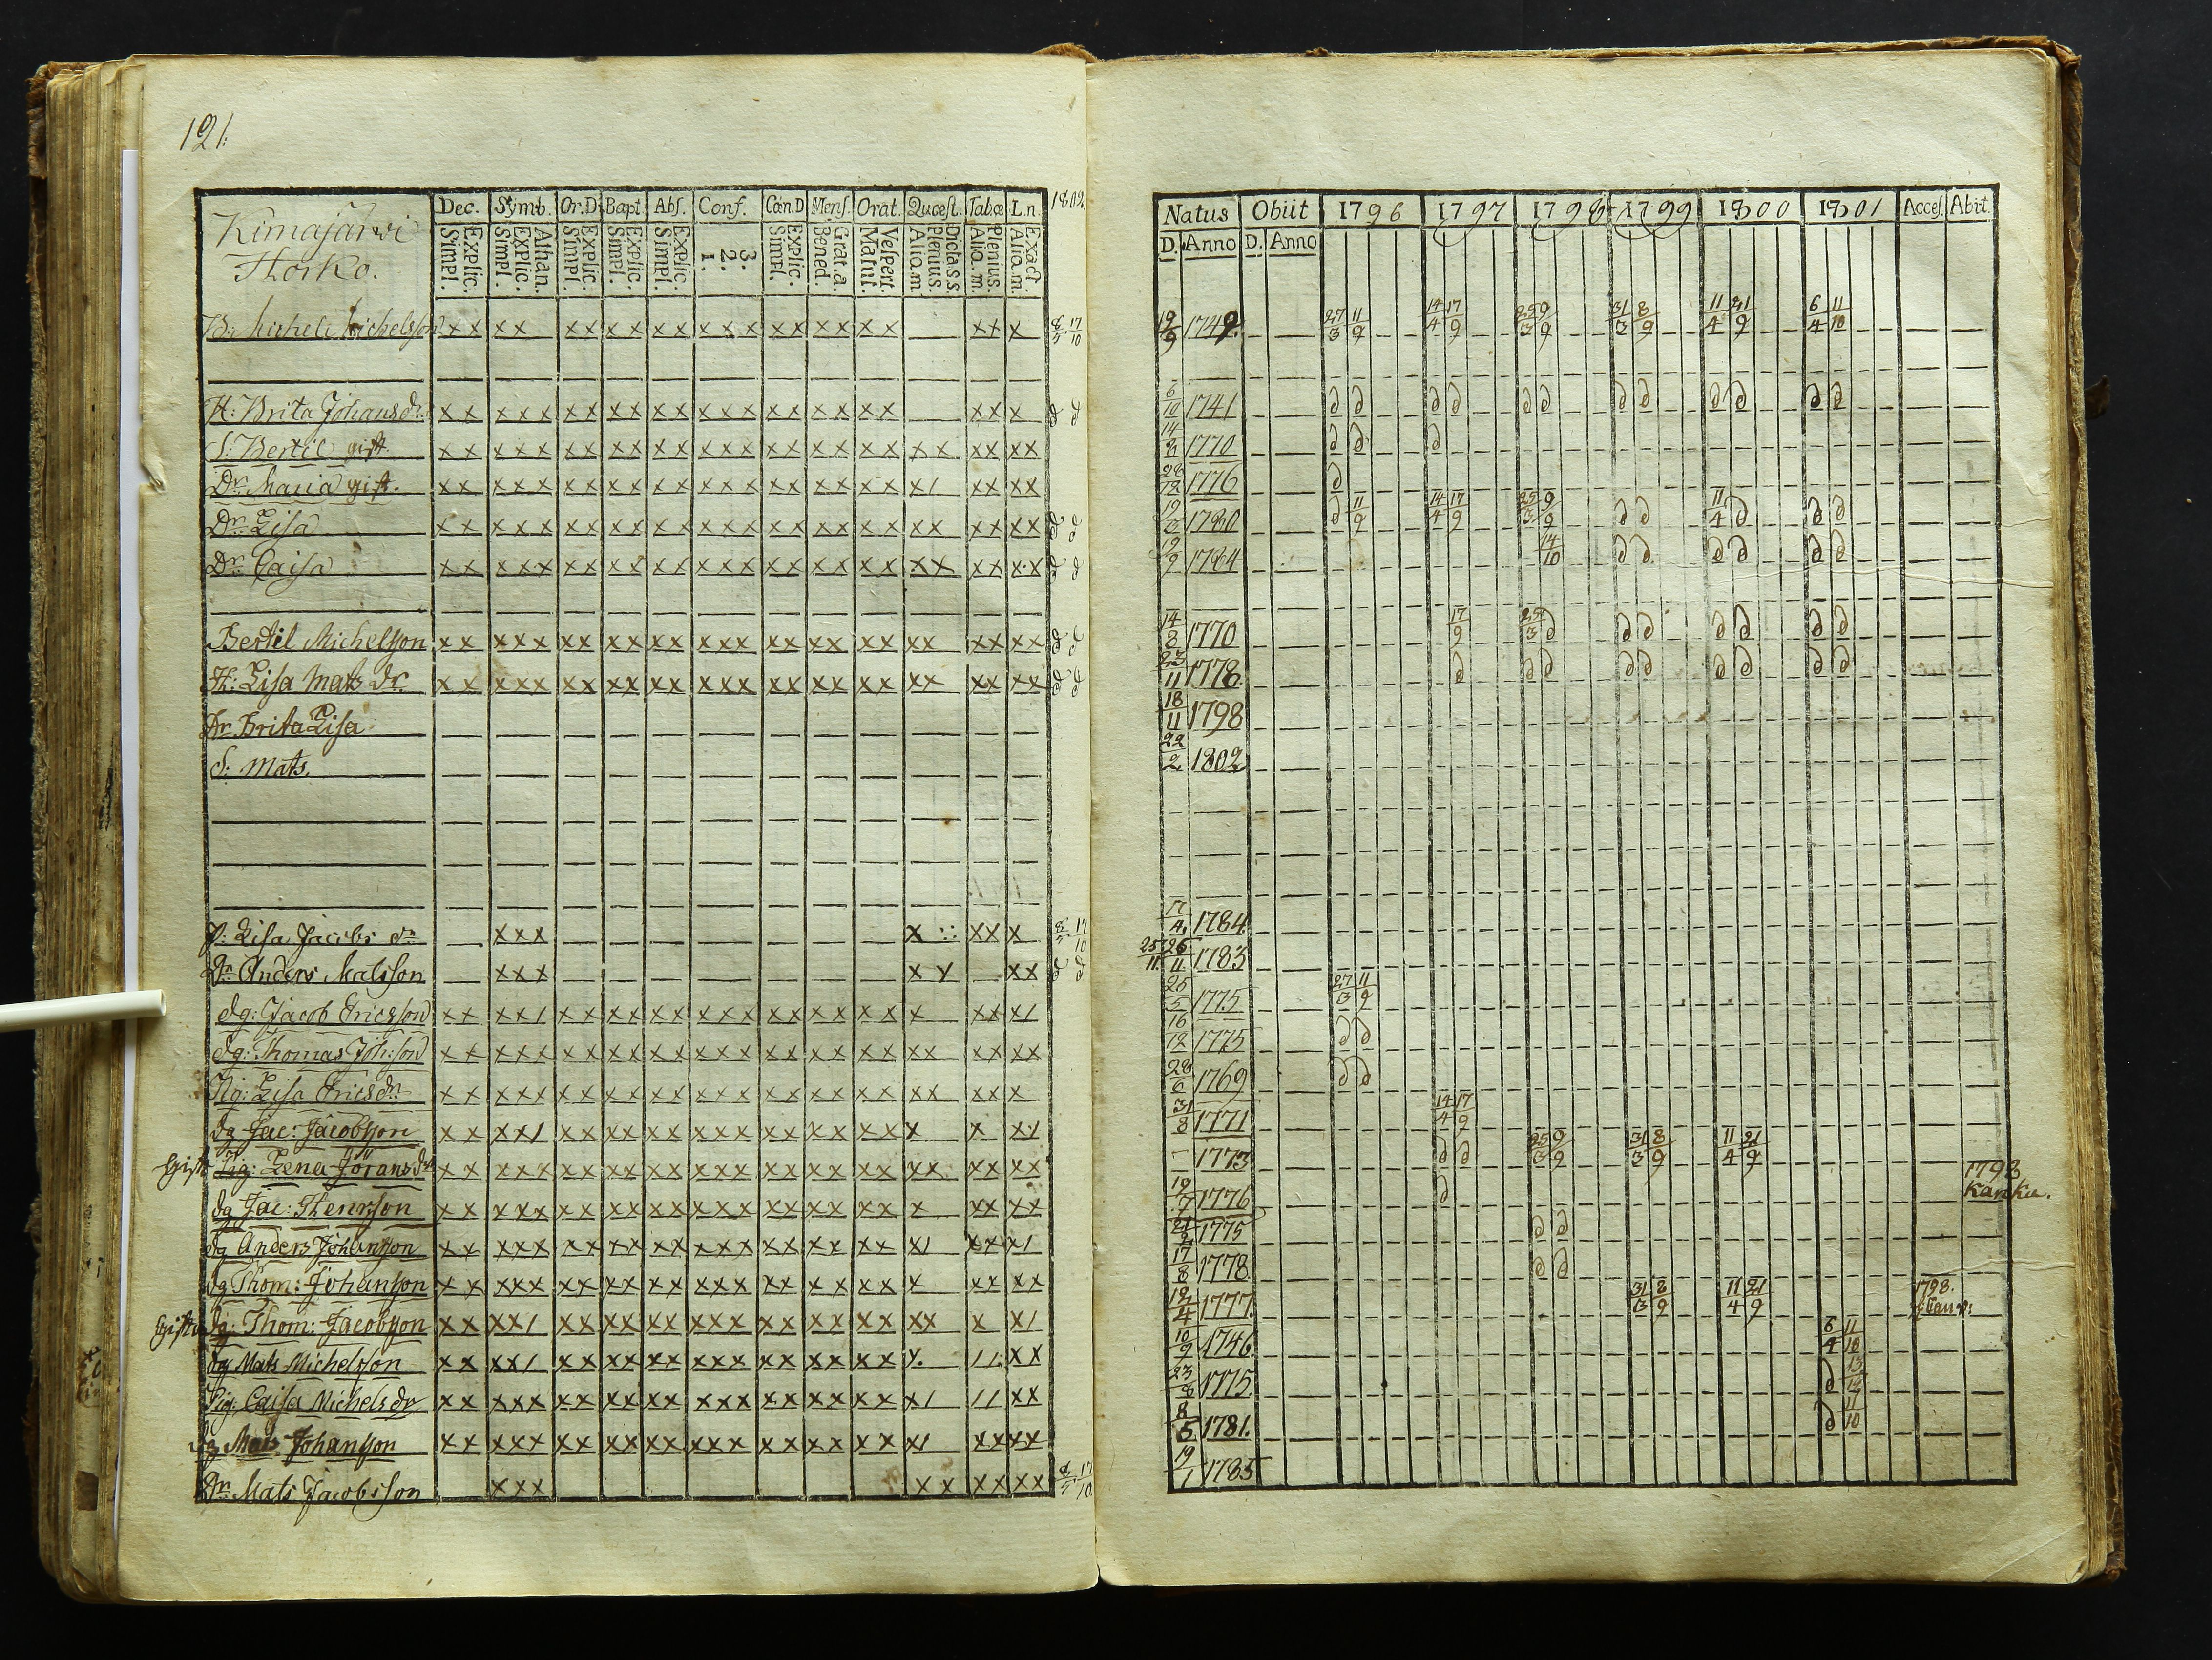 121.
Kimajärwi
Storko.
Dec. Symb. Or.D Bapt. Abs. Conf. Cœn.D Mens. Orat. Quæst. Tabæ L.n. 1802.
Simpl. Explic. Simpl. Explic. Athan. Simpl. Explic. Simpl. Explic. Simpl. Explic. 1. 2. 3. Simpl. Explic. Bened. Grat.a. Matut. Vespert. Aliq.m. Plenius. Dicta.s.s. Aliq.m. Plenius. Aliq.m. Exact
Michelsson xx xx xx xx xx xxx xx xx xx xx x 8/5 17/10
H: Brita Johansdr. xx xxx xx xx xx xxx xx xx xx xx x d d
S: Bertil gift xx xxx xx xx xx xxx xx xx xx xx xx xx
Dr Maria gift. xx xxx xx xx xx xxx xx xx xx x/ xx xx
Dr. Lisa xx xxx xx xx xx xxx xx xx xx xx xx xx d d
Dr. Caisa xx xxx xx xx xx xxx xx xx xx xx xx xx d d
Bertil Michelsson xx xxx xx xx xx xxx xx xx xx xx xx xx d d
H: Lisa Mats dr. xx xxx xx xx xx xxx xx xx xx xx xx xx d d
Dr. Brita Lisa
S: Mats.
P: Lisa Jacobs dr xxx x xx x 8/5 17/10
Dr Anders Matsson xxx x y xx d d
dg: Jacob Ericsson xx xx/ xx xx xx xxx xx xx xx x xx x/
dg: Thomas Joh:son xx xxx xx xx xx xxx xx xx xx xx xx xx
Pig: Lisa Ericsdr xx xxx xx xx xx xxx xx xx xx xx xx x
dg Jac: Jacobsson xx xx/ xx xx xx xxx xx xx xx x x x/
Gift Pig: Lena Jöransdr xx xxx xx xx xx xxx xx xx xx xx xx xx
dg Jac: Henrsson xx xxx xx xx xx xxx xx xx xx x xx xx
dg Anders Johansson xx xxx xx xx xx xxx xx xx xx x/ xx x/
dg Thom: Johansson xx xxx xx xx xx xxx xx xx xx x xx xx
Gift dg: Thom: Jacobsson xx xx/ xx xx xx xxx xx xx xx xx x x/
dg Mats Michelsson xx xx/ xx xx xx xxx xx xx xx y. // xx
Pig: Caisa Michelsdr xx xxx xx xx xx xxx xx xx xx x/ // xx
dg Mats Johansson xx xxx xx xx xx xxx xx xx xx x/ xx xx
Dr. Mats Jacobsson xxx xx xx xx 8/5 17/10
Natus Obiit 1796 1797 1798 1799 1800 1801 Acces. Abit.
D. Anno D. Anno
19/9 1749. 27/3 11/9 14/4 17/9 25/3 9/9 31/3 8/9 11/4 21/9 6/4 11/10
6/10 1741 d d d d d d d d d d d d
14/8 1770 d d d
28/12 1776 d
19/3 1780 d 11/9 14/4 17/9 25/3 9/9 d d 11/4 d d d
19/9 1784 14/10 d d d d d d
14/8 1770 17/9 25/3 d d d d d d d
23/11 1778. d d d d d d d d d
18/11 1798
22/2 1802
17/4 1784
25/11 26/11 1783
25/5 1775 27/3 11/9
16/12 1775 d d
28/6 1769 d d
31/8 1771 14/4 17/9
1773 d d 25/3 9/9 31/3 8/9 11/4 21/9
19/7 1776 d 1798 Kanku.
21/2 1775 d d
17/8 1778 d d
12/4 1777. 31/3 8/9 11/4 21/9 1798.
10/9 1746 6/4 11/10
23/8 1775 d
8/5 1781. d 11/10
19/1 1785